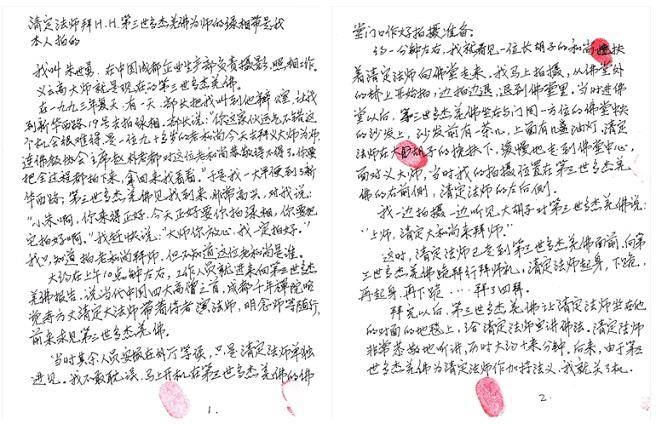 清定法师拜H.H.第三世多杰羌佛为师的录相带是我
本人拍的
我叫朱世勇，在中国成都企业生产部负责摄影、照相工作。
义云高大师就是现在的第三世多杰羌佛。
在一九九三年夏天，有一天，部长把我叫到他办公室，让我
到新华西路19号去拍录相。部长说：“你这家伙运气不错，这
个机会很难得，是一位九十多岁的老和尚今天来拜义大师为师，
连佛教协会主席赵朴老都对这位老和尚恭敬得不得了，你要
把全过程都拍下来，拿回来我看看。”于是我一大早便到了新
华西路。第三世多杰羌佛见我到来，非常高兴，对我说：
“小朱啊，你来得正好，今天正好要你拍录相，你要把
它拍好啊。”我赶快说：“大师你放心，我一定拍好。”
我只知道拍老和尚拜师，但不知道这位老和尚是谁。
大约在上午10点钟左右，工作人员就进来向第三世多杰
羌佛报告，说当代中国四大高僧之首，成都千年禅院昭
觉寺方丈清定大法师带着侍者演法师，明念师等随行，
前来求见第三世多杰羌佛。
当时其余人员安排在外厅等候，只是清定法师单独
进见。我不敢耽误，马上开机在第三世多杰羌佛的佛
1.
堂门口作好拍摄准备。
约一分钟左右，我就看见一位长胡子的和尚搀扶
着清定法师向佛堂走来，我马上拍摄，从佛堂外
的梯上开始拍，边拍边退，退到佛堂里，当时进佛
堂以后，第三世多杰羌佛坐在与门同一方位的佛堂中央
的沙发上，沙发前有一茶几，上面有几盏油灯。清定
法师在大胡子的搀扶下，缓慢地走到佛堂中心，
面对义大师，当时我的拍摄位置在第三世多杰羌
佛的右前侧，清定法师的左后侧。
我一边拍摄一边听见大胡子对第三世多杰羌佛说：
“上师，清定大和尚来拜师。”
这时，清定法师已走到第三世多杰羌佛面前，向第
三世多杰羌佛跪拜行拜师礼，清定法师起身，下跪，
再起身，再下跪……拜了四拜。
拜完以后，第三世多杰羌佛让清定法师坐在他
的对面的地毯上，给清定法师宣讲佛法。清定法师
非常恭敬地听讲，历时大约十来分钟。后来，由于第三
世多杰羌佛为清定法师作加持法义，我就关了机。
2.